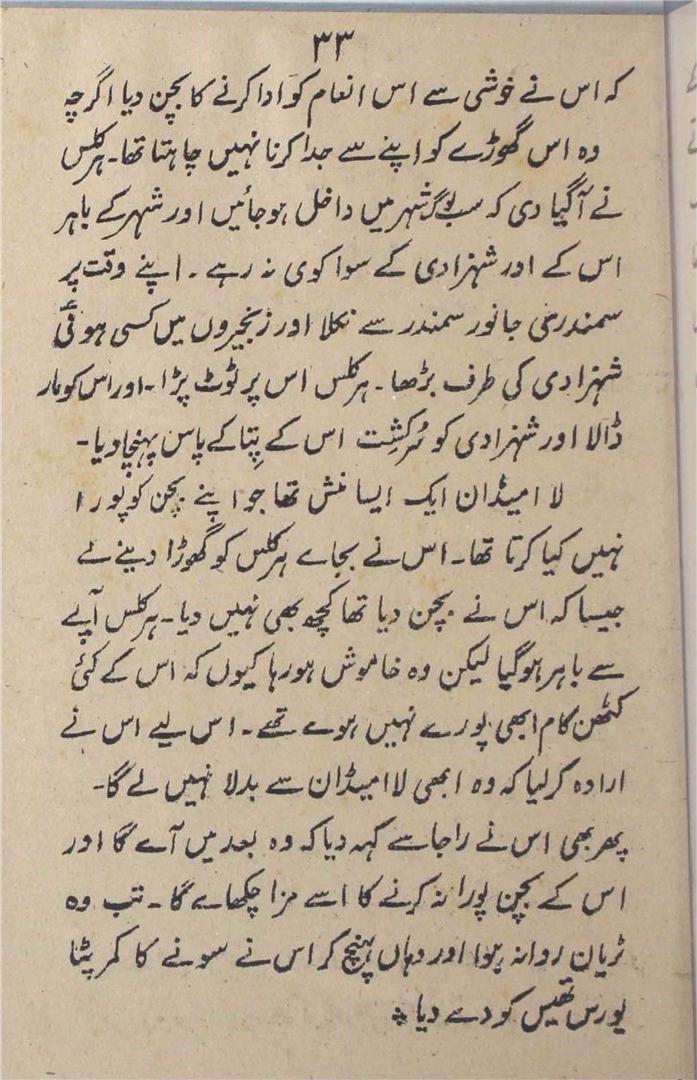 ۳۳
کہ اس نے خوشی سے اس انعام کو ادا کرنے کا بچن دیا اگرچہ
وہ اس گھوڑے کو اپنے سے جدا کرنا نہیں چاہتا تھا۔ ہرکلس
نے آگیا دی کہ سب لوگ شہر میں داخل ہو جائیں اور شہر کے باہر
اس کے اور شہزادی کے سوا کوی نہ رہے ۔ اپنے وقت پر
سمندری جانور سمندر سے نکلا اور زنجیروں میں کسی ہوئی
شہزادی کی طرف بڑھا ۔ ہرکلس اس پر ٹوٹ پڑا ۔ اور اس کو مار
ڈالا اور شہزادی کو سُرکشِت اس کے پِتا کے پاس پہنچا دیا ۔
لاامیڈان ایک ایسا منش تھا جو اپنے بچن کو پورا
نہیں کیا کرتا تھا ۔ اس نے بجاے ہرکلس کو گھوڑا دینے کے
جیسا کہ اس نے بچن دیا تھا کچھ بھی نہیں دیا ۔ ہرکلس آپے
سے باہر ہو گیا لیکن وہ خاموش ہو رہا کیوں کہ اس کے کئی
کٹھن کام ابھی پورے نہیں ہوے تھے ۔ اس لیے اس نے
ارادہ کر لیا کہ وہ ابھی لاامیڈان سے بدلا نہیں لے گا ۔
پھر بھی اس نے راجا سے کہہ دیا کہ وہ بعد میں آے گا اور
اس کے بچن پورا نہ کرنے کا اسے مزا چکھاے گا ۔ تب وہ
ٹریان روانہ ہوا اور وہاں پہنچ کر اس نے سونے کا کمر پٹا
یورس تھیس کو دے دیا *